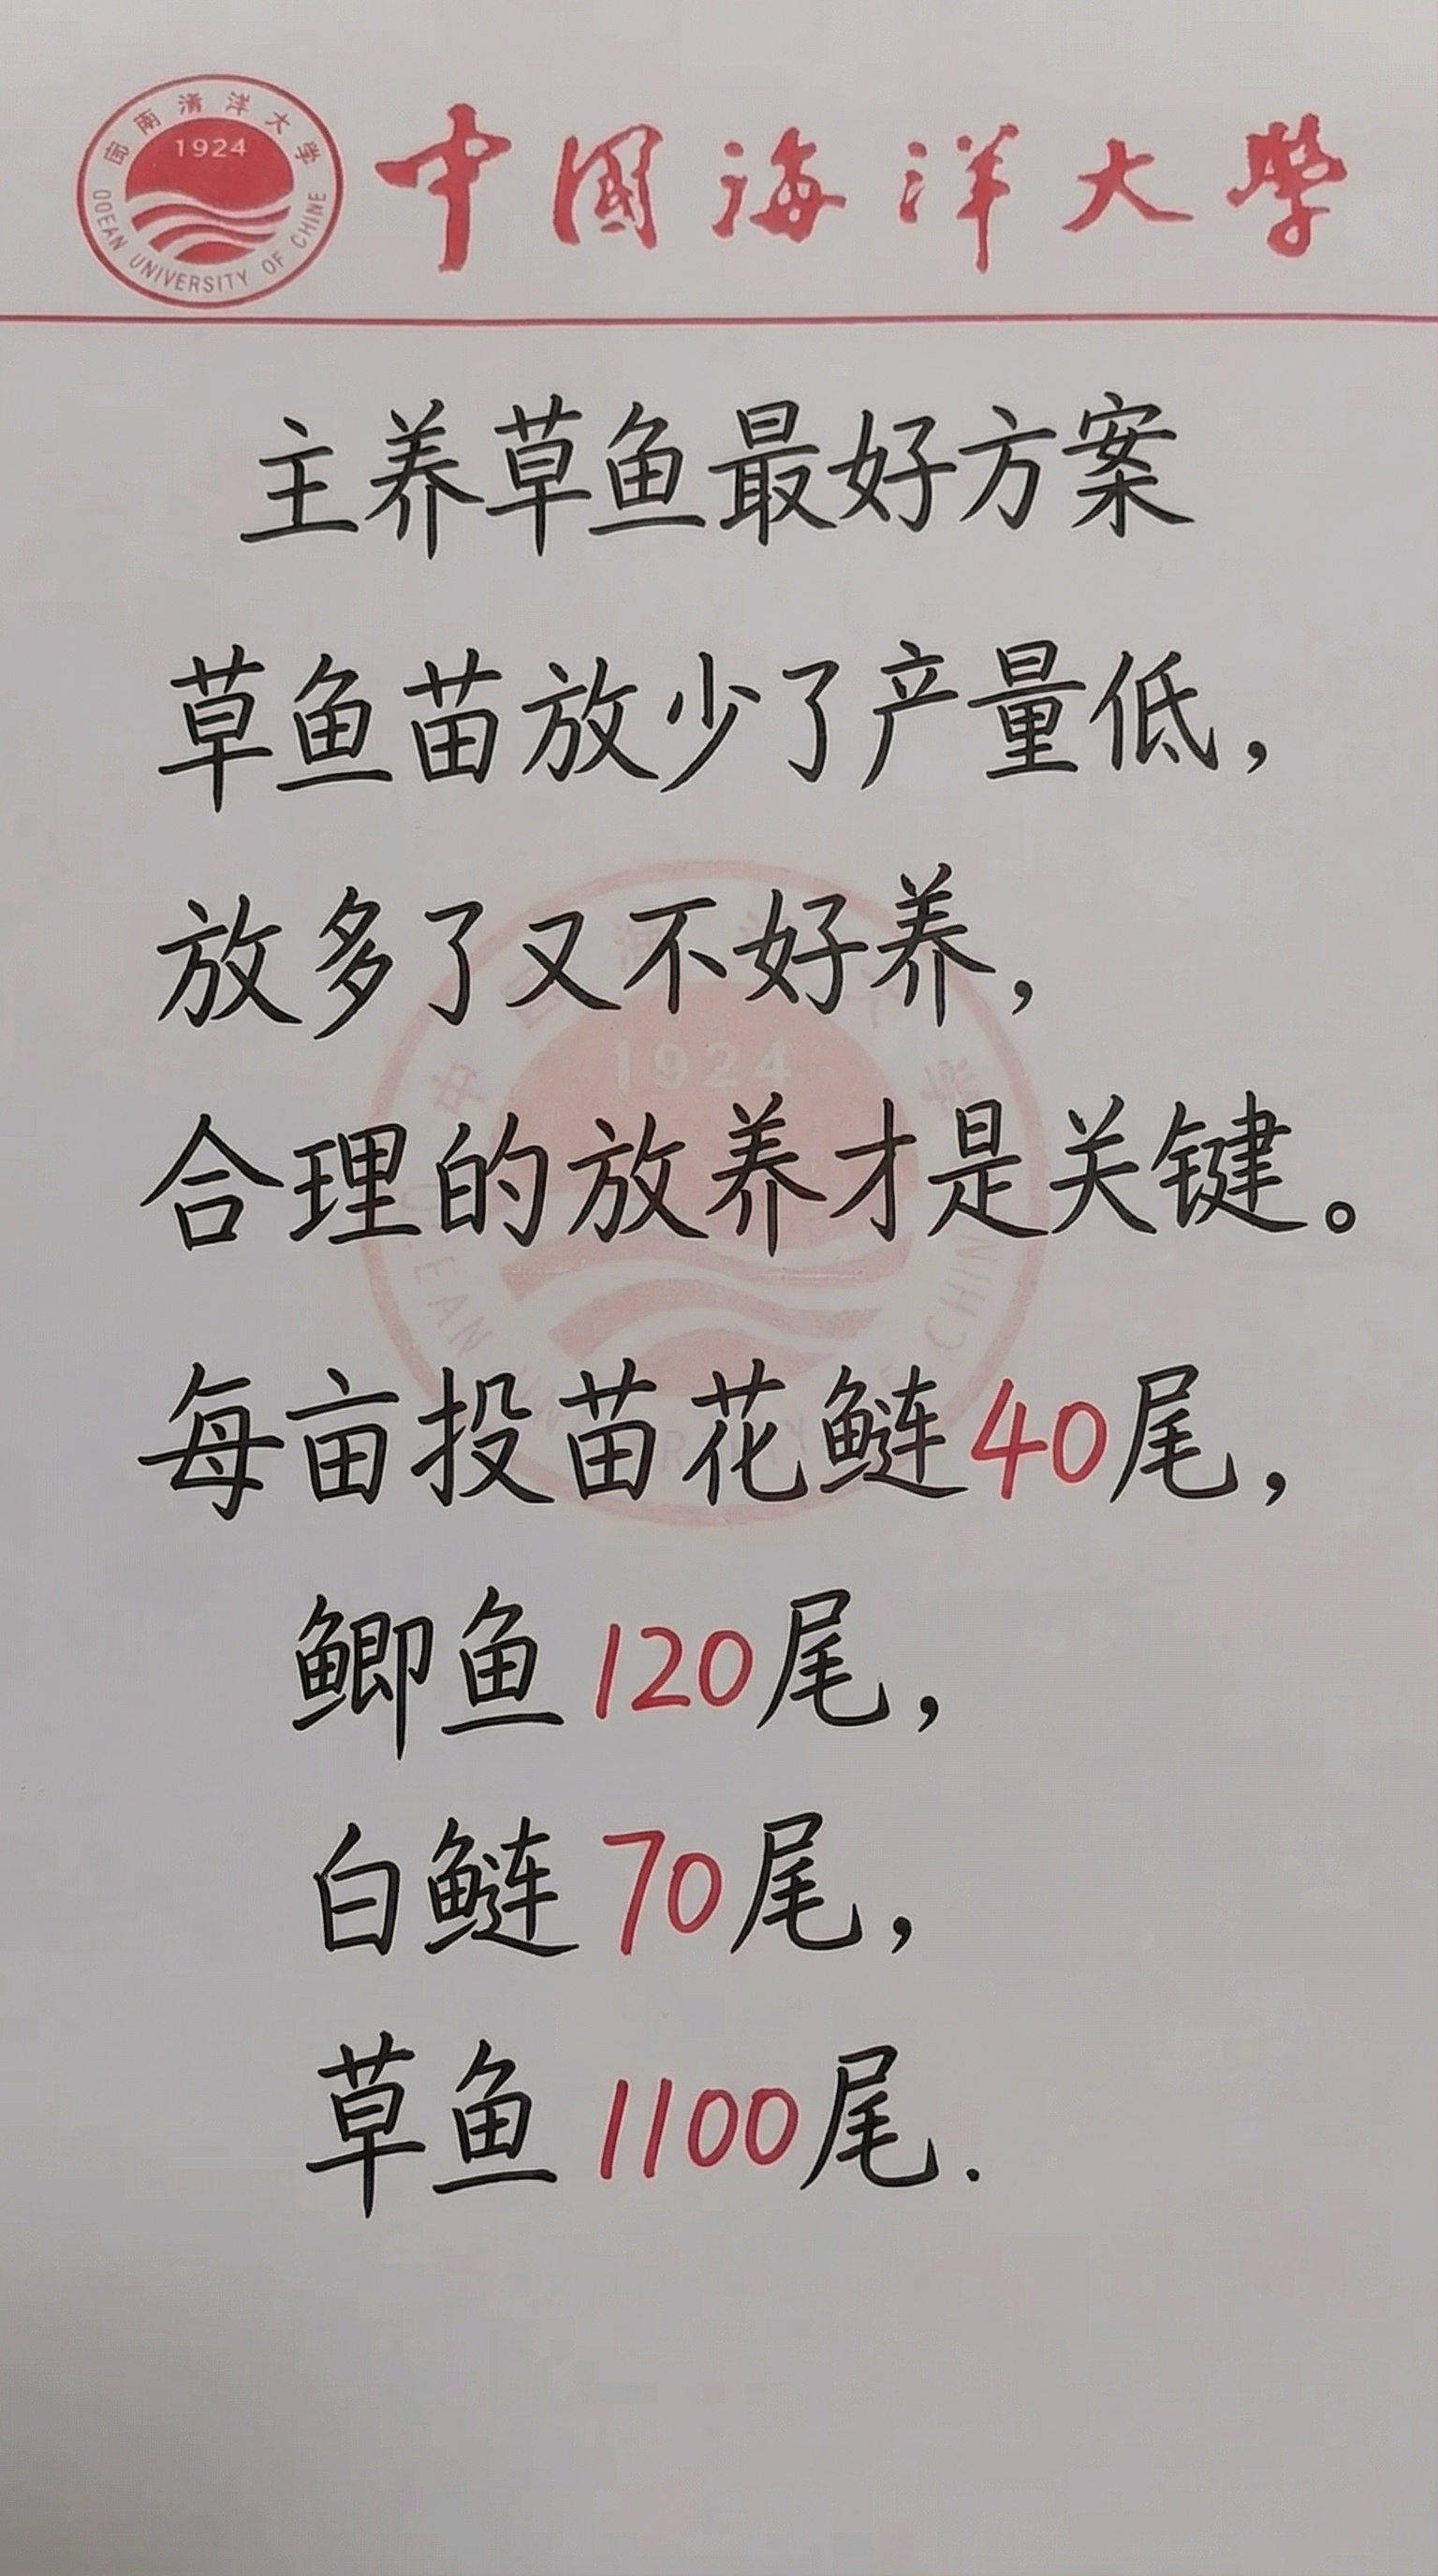 1924
OOEAN UNIVERSITY OF CHINE
中國海洋大學
主养草鱼最好方案
草鱼苗放少了产量低，
放多了又不好养，
1924
合理的放养才是关键。
每亩投苗花鲢40尾，
鲫鱼120尾，
白鲢70尾，
草鱼1100尾.